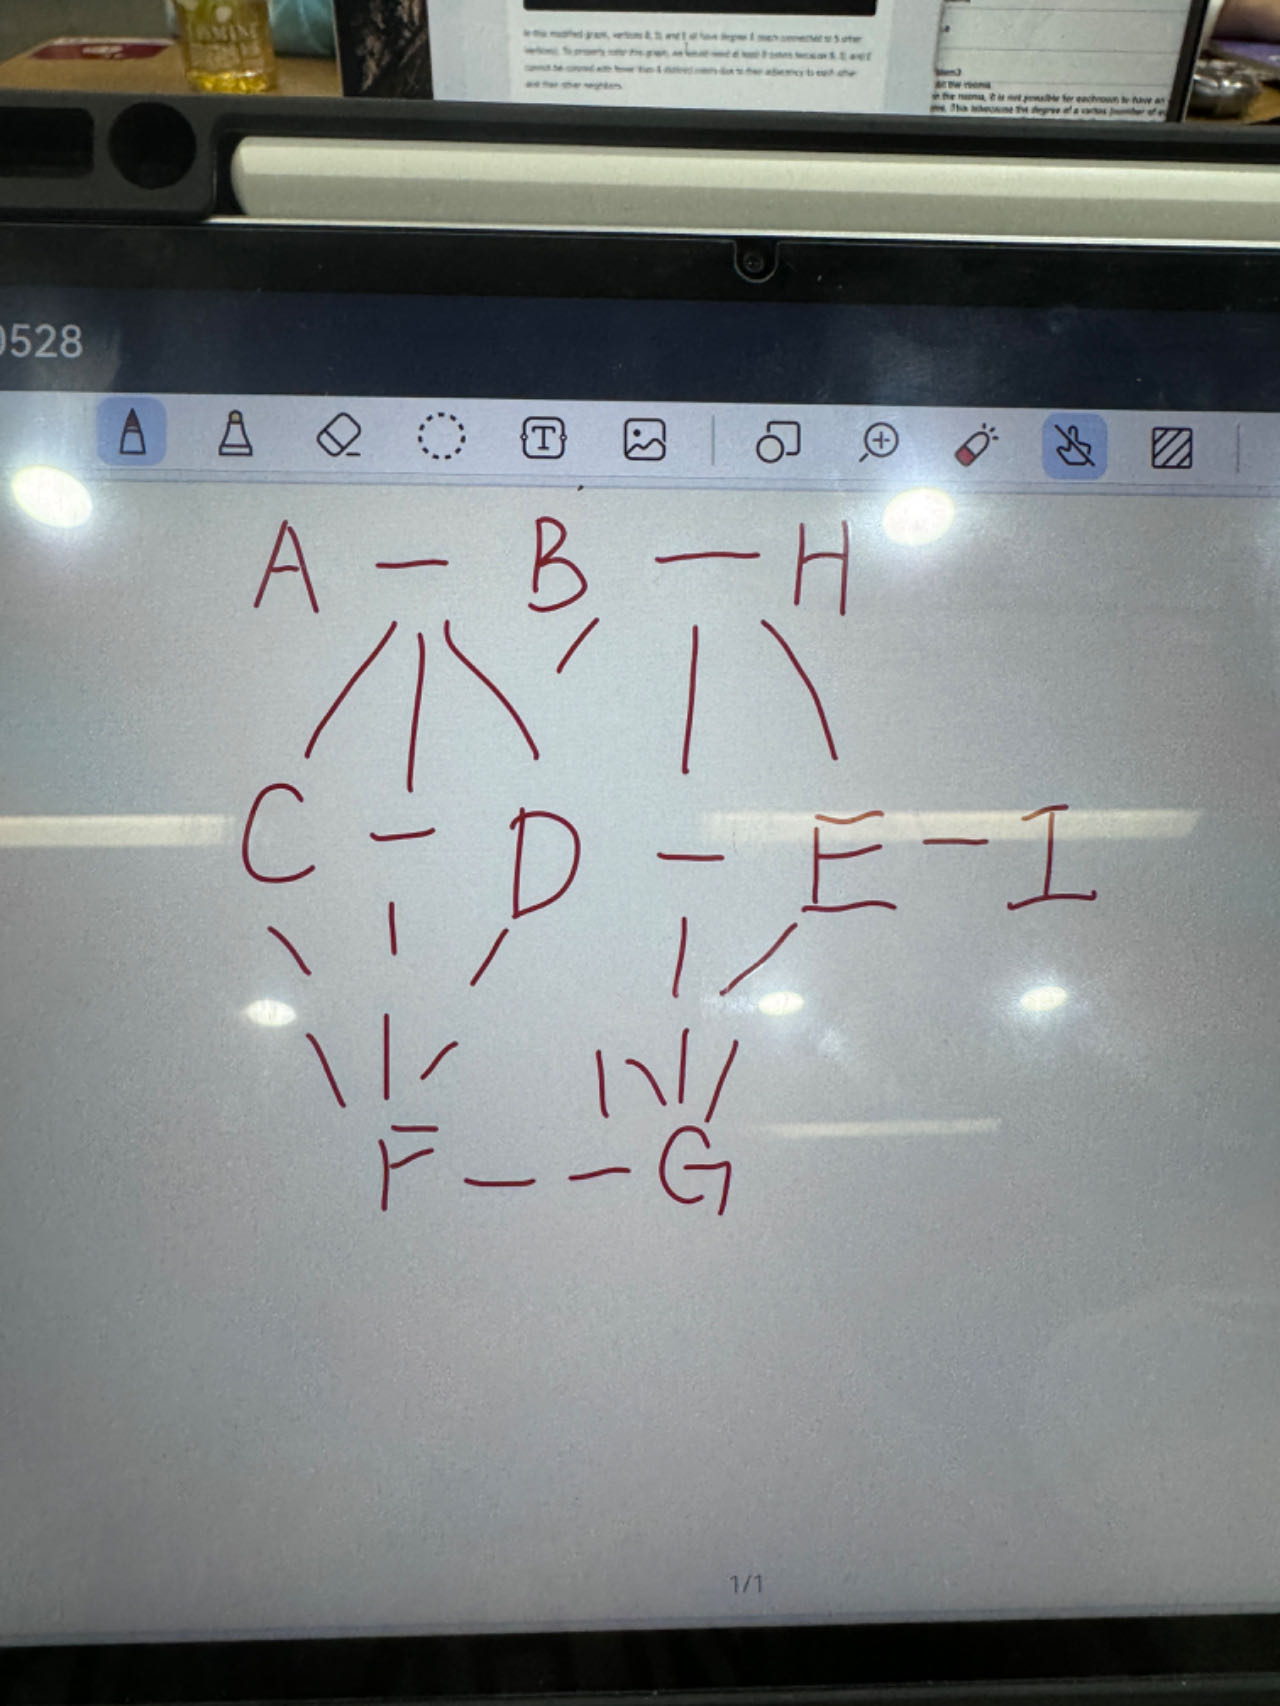 In this modified graph, vertices B, D, and E all have degree 5 (each connected to 5 other
vertices). To properly color this graph, we would need at least
cannot be colored with fewer than
distinct colors due to their adjacency to each other
and their other neighbors.
the rooms
the rooms, it is not possible for each room to have an
This is because the degree of a vertex (number of
0528
T
A - B — H
C - D - E - I
F - - G
1/1